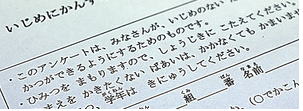 いじめにかんす
・このアンケートは、みなさんが、いじめのない
かつができるようにするためのものです。
・ひみつを まもりますので、しょうじきに こたえてください。
まえを かきたくない ばあいは、かかなくても かまいま
学年は きにゅうしてください。
組 番 名前
(○でかこ